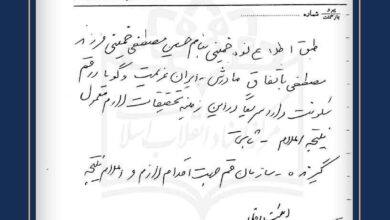 شماره
طبق اطلاع نوه خمینی بنام حسین مصطفی خمینی فرزند
مصطفی باتفاق مادرش - ایران عزیمت و گویا در قم
سکونت دارد سریعاً در این زمینه تحقیقات لازم معمول
نتیجه اعلام - ثابتی
گیرنده - سازمان قم جهت اقدام لازم و اعلام نتیجه